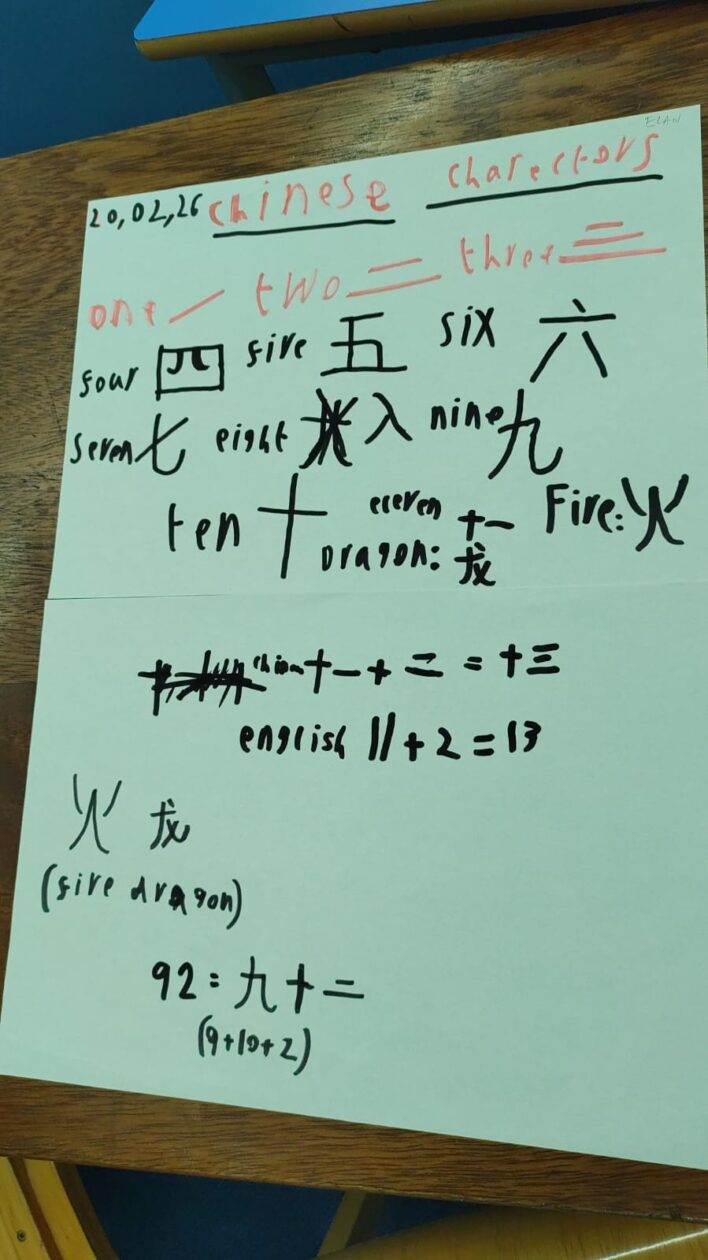 ELAN
20,02,26 chinese charectors
one 一 two 二 three 三
four 四 five 五 six 六
seven 七 eight 入 nine 九
ten 十 eleven 十一 Fire: 火
Dragon: 龙
十一 + 二 = 十三
english 11 + 2 = 13
火 龙
(fire dragon)
92 = 九十二
(9+10+2)